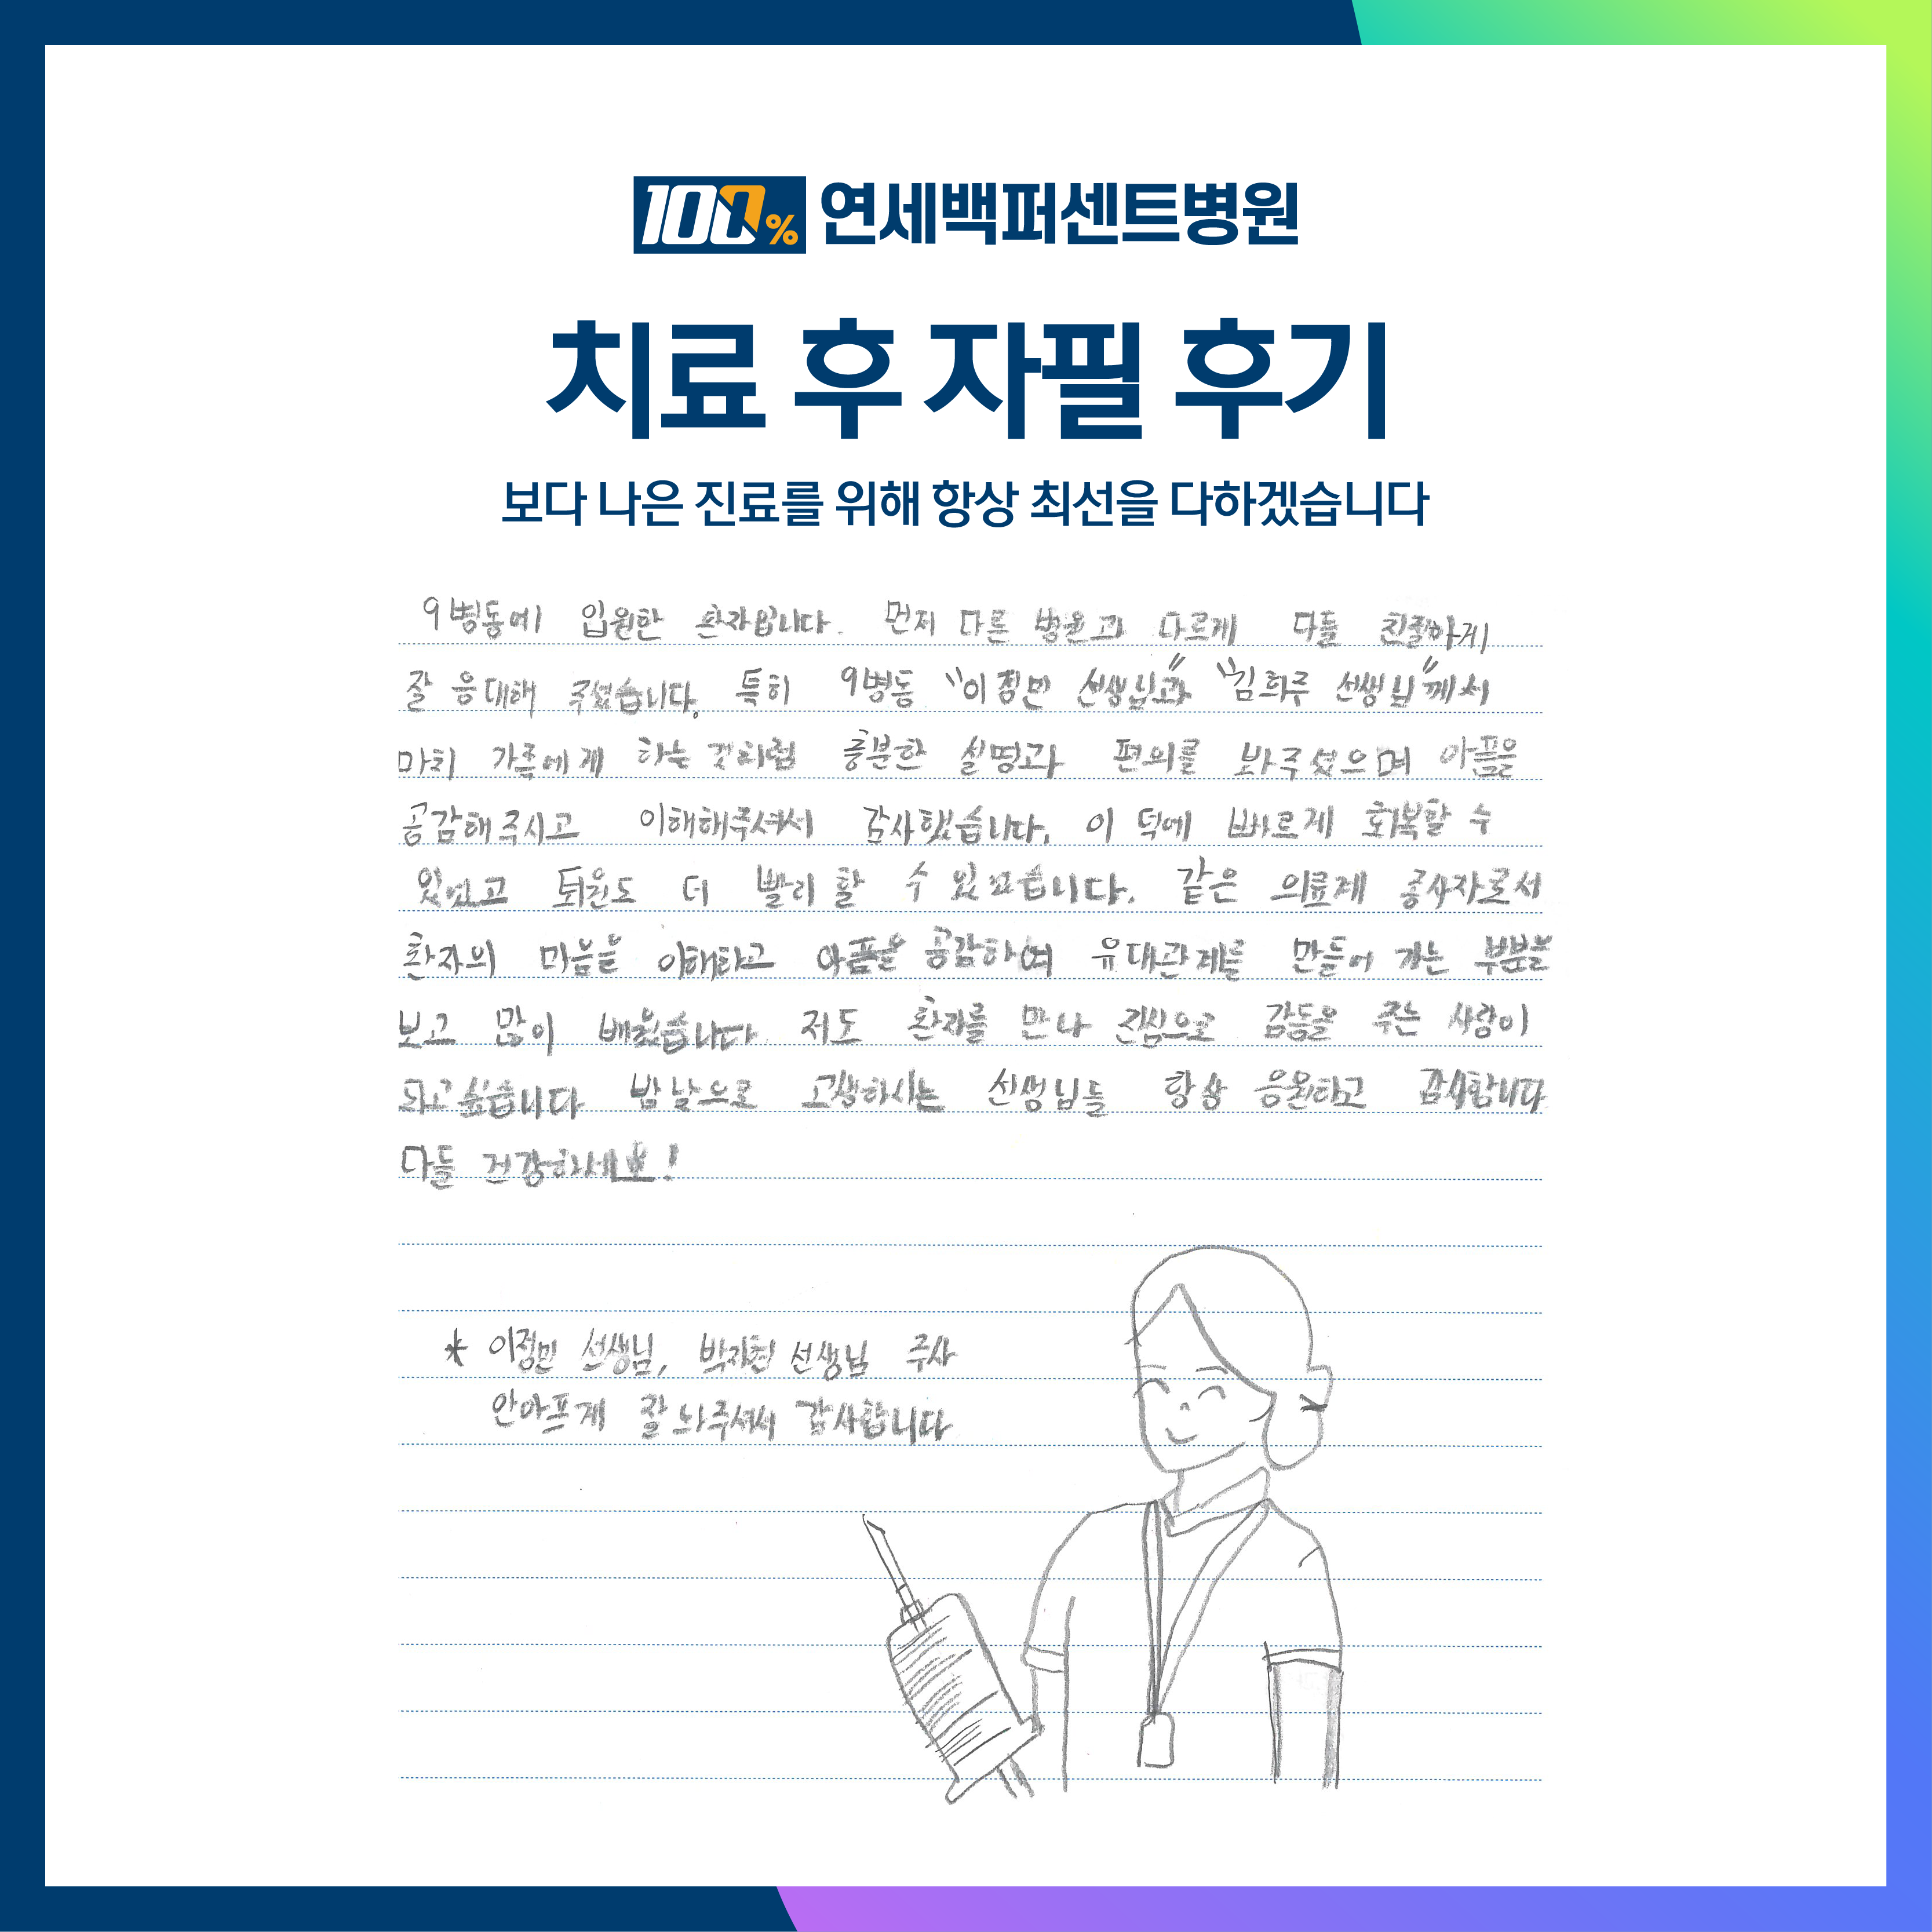 100% 연세백퍼센트병원
치료 후 자필 후기
보다 나은 진료를 위해 항상 최선을 다하겠습니다
9병동에 입원한 환자입니다. 먼저 다른 병원과 다르게 다들 친절하게
잘 응대해 주셨습니다. 특히 9병동 "이정민 선생님과" "김희주 선생님"께서
마치 가족에게 하는 것처럼 충분한 설명과 편의를 봐주셨으며 아픔을
공감해주시고 이해해주셔서 감사했습니다. 이 덕에 빠르게 회복할 수
있었고 퇴원도 더 빨리 할 수 있었습니다. 같은 의료계 종사자로서
환자의 마음을 이해하고 아픔을 공감하며 유대관계를 만들어 가는 부분을
보고 많이 배웠습니다 저도 환자를 만나 진심으로 감동을 주는 사람이
되고싶습니다 밤낮으로 고생하시는 선생님들 항상 응원하고 감사합니다
다들 건강하세요!
* 이정민 선생님, 박지현 선생님 주사
안아프게 잘 놔주셔서 감사합니다